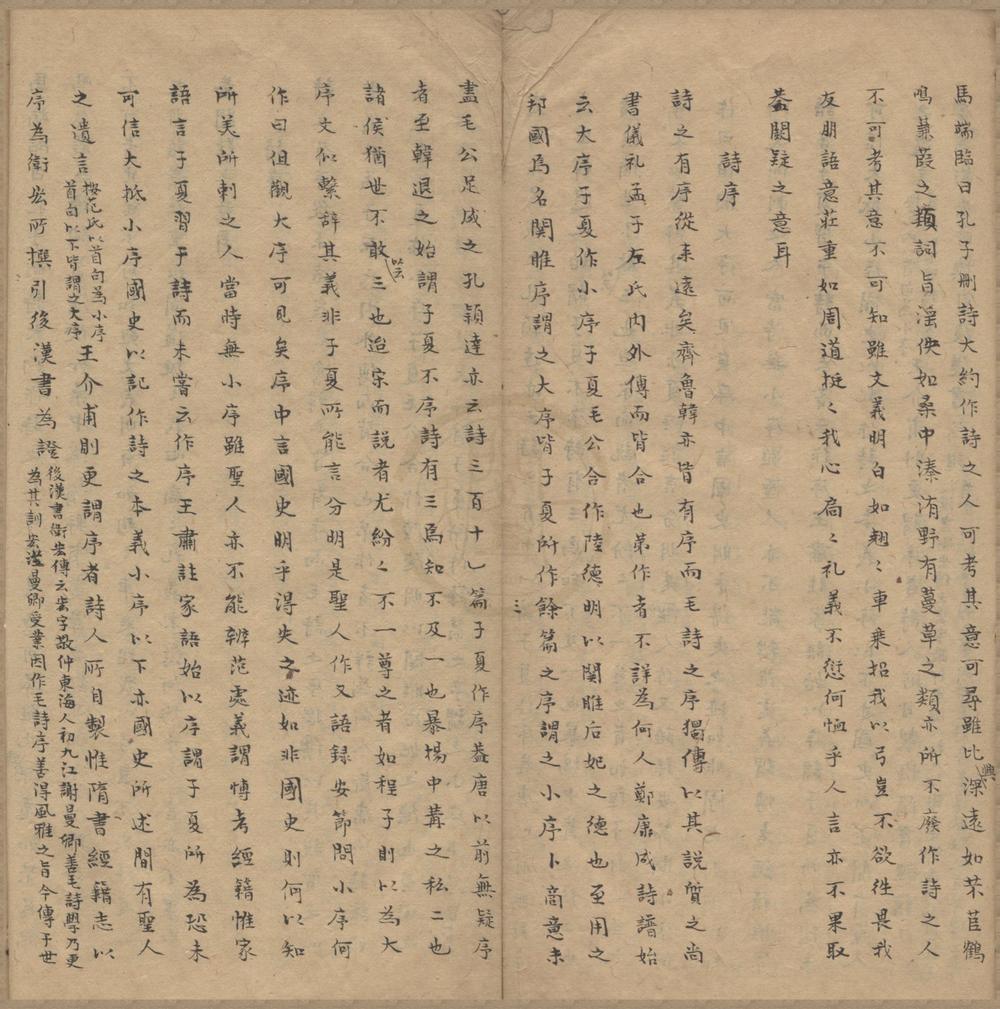 馬端臨曰孔子刪詩大約作詩之人可考其意可尋雖比興深遠如芣苢鶴
鳴蒹葭之類詞旨淫佚如桑中溱洧野有蔓草之類亦所不廢作詩之人
不可考其意不可知雖文義明白如翹〻車乘招我以弓豈不欲徃畏我
友朋語意莊重如周道挺〻我心扃〻礼義不愆何恤乎人言亦不果取
葢闕疑之意耳
詩序
詩之有序從来遠矣齊魯韓亦皆有序而毛詩之序獨傳以其說質之尚
書儀礼孟子左氏内外傳而皆合也苐作者不詳為何人鄭康成詩譜始
云大序子夏作小序子夏毛公合作陸德明以関睢后妃之德也至用之
邦國焉名関睢序謂之大序皆子夏所作餘篇之序謂之小序卜商意未
盡毛公足成之孔穎達亦云詩三百十一篇子夏作序葢唐以前無疑序
者至韓退之始謂子夏不序詩有三焉知不及一也暴揚中冓之私二也
諸侯猶世不敢以云三也迨宋而說者尤紛〻不一尊之者如程子則以為大
序文似繫辞其義非子夏所能言分明是聖人作又語録安節問小序何
作曰但觀大序可見矣序中言國史明乎得失之迹如非國史則何以知
所美所刺之人當時無小序雖聖人亦不能辨范處義謂愽考經籍惟家
語言子夏習于詩而未嘗云作序王肅註家語始以序謂子夏所為恐未
可信大抵小序國史以記作詩之本義小序以下亦國史所述間有聖人
之遺言
按范氏以首句為小序
首句以下皆謂之大序
王介甫則更謂序者詩人所自製惟隋書經籍志以
序為衛宏所撰引後漢書為證
後漢書衛宏傳云宏字敬仲東海人初九江謝曼卿善毛詩學乃更
為其訓宏從曼卿受業因作毛詩序善得風雅之旨今傳于世